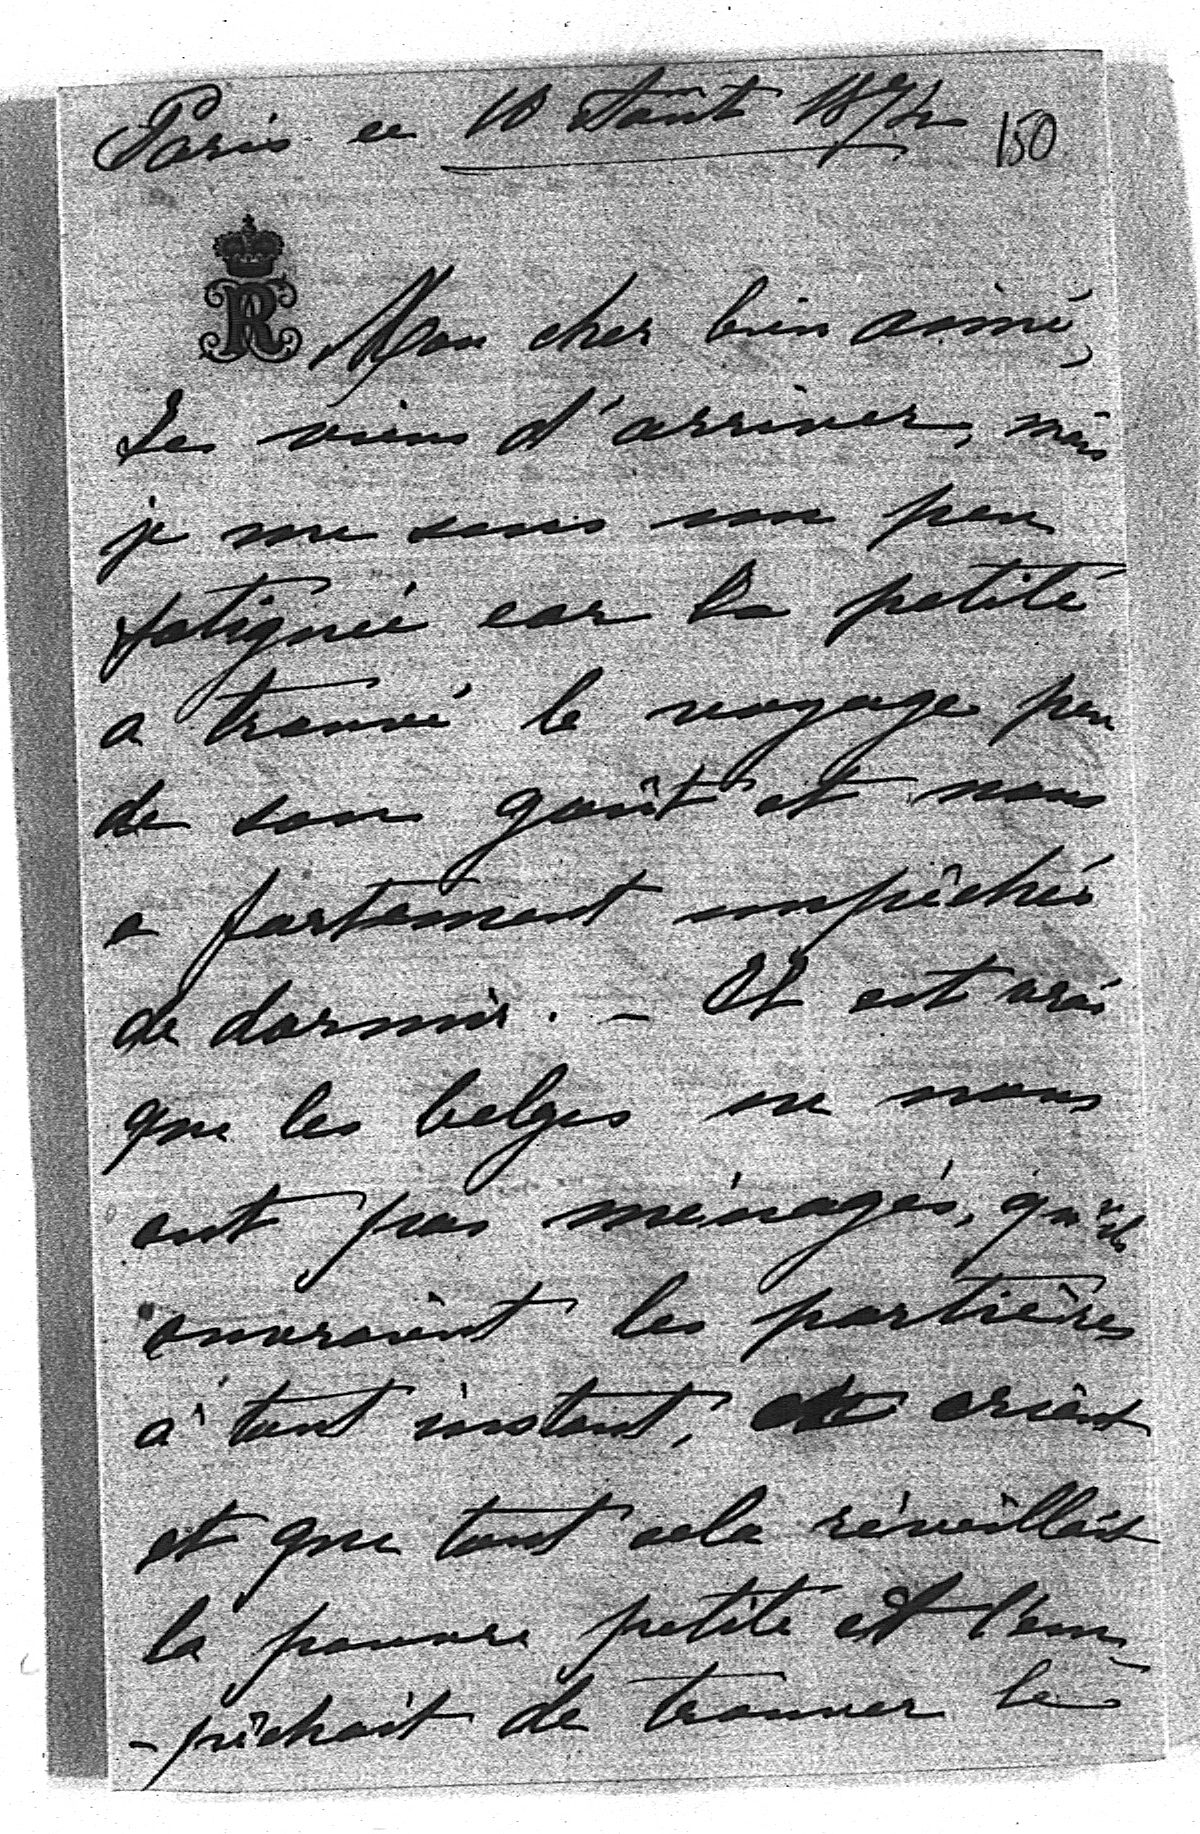 Paris ce 18 Août 1872
150
R
Mon cher bien aimé,
Je viens d'arriver, mais
je me sens un peu
fatiguée car la petite
a trouvé le voyage peu
de son goût et nous
a fortement empêchés
de dormir. – Il est vrai
que les belges ne nous
ont pas ménagés, qu'ils
ouvraient les portières
à tout instant, criant
et que tout cela réveillait
la pauvre petite et l'em-
-pêchait de trouver le